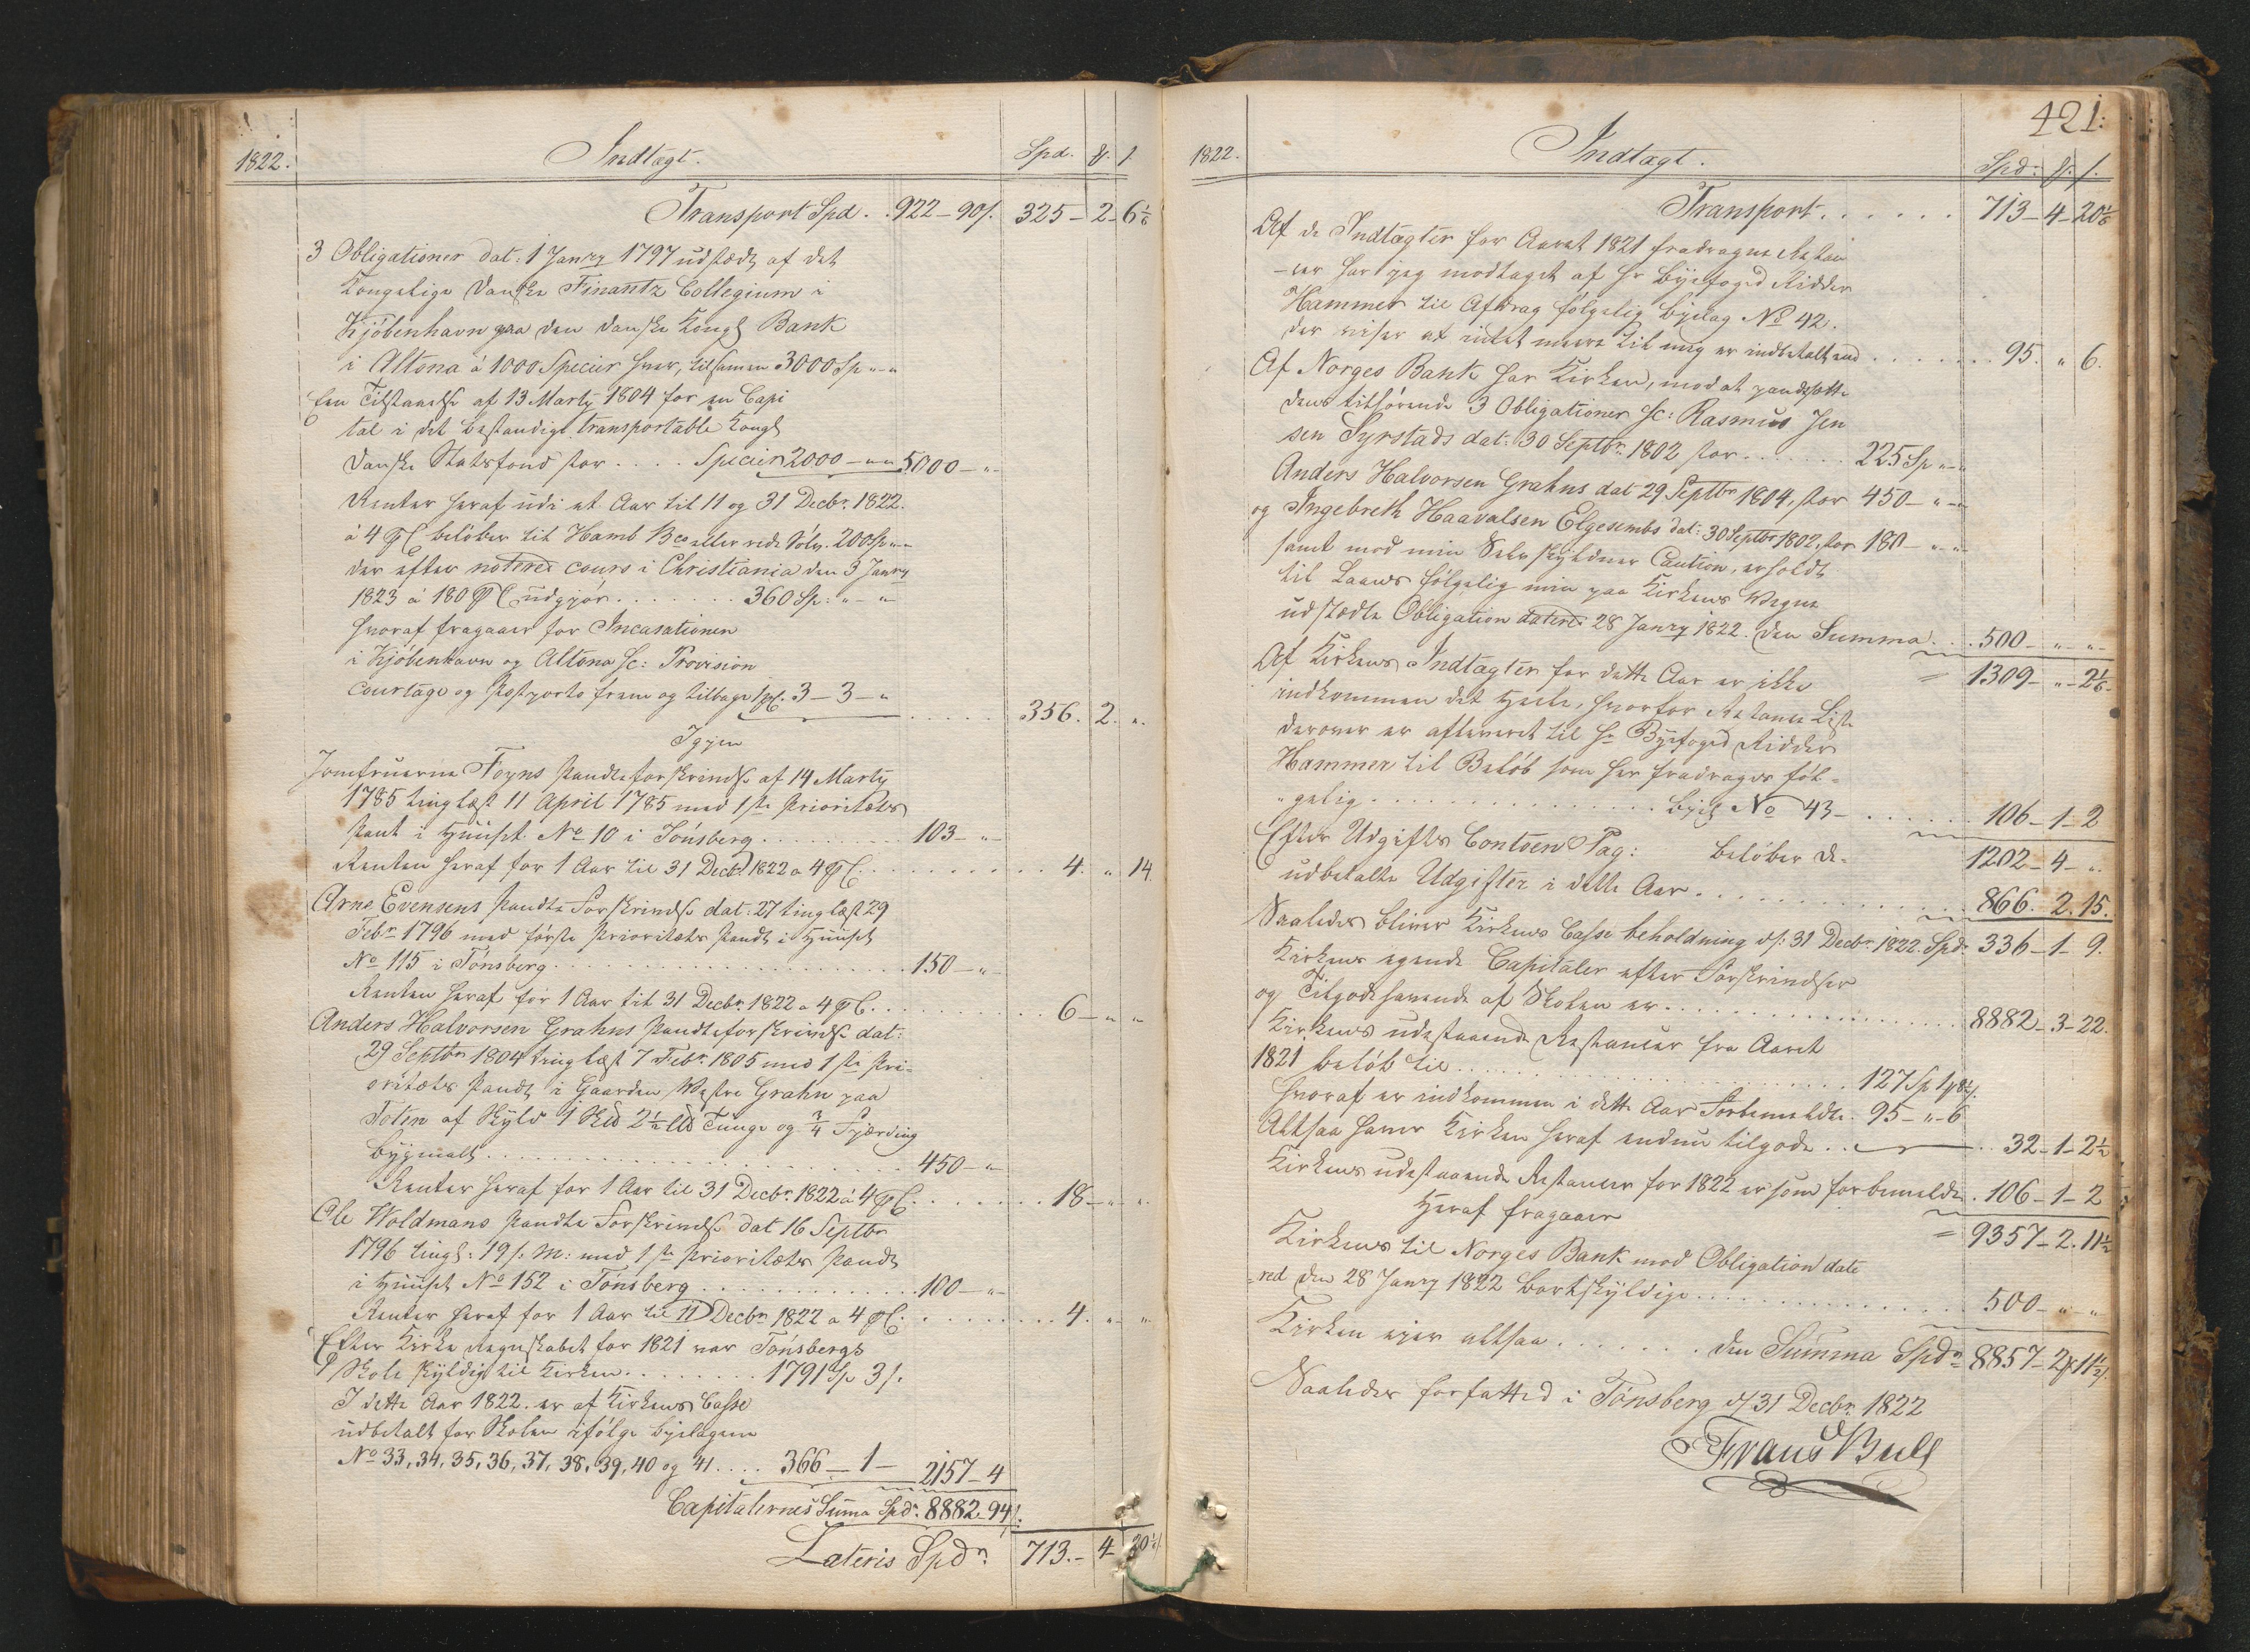 1822.
Indtægt.
Spd. ꝩ. ſ
Transport Spd. . 922 – 90ſ. 325 – 2 – 6 1/6
3 Obligationer dat: 1 Janry 1797 udstædt af det
Kongelige Danske Finantz Collegium i
Kjöbenhavn paa den Danske Kongl Bank
i Altona á 1000 Specier hver, tilsamen 3000 Sp „ – „
Een Tilstaaelse af 13 Marty 1804 for en Capi
tal i det bestandige transportable Kongl
Danske Statsfond stor . . . . Specier 2000 – „ „ 5000 – „ –
Renter heraf udi et Aar til 11 og 31 Decbr. 1822.
á 4 pC belöber til Hamb Bco eller rede Sölv. 200 Sp „ –
der efter noteret cours i Christiania den 3 Janry
1823 á 180 pC udgjör . . . . . . . 360 Sp: „ – „
hvoraf fragaaer for Incasationen
i Kjöbenhavn og Altona sc: Provision
Courtage og Postporto frem og tilbage 3 – 3 – „
. . . . . 356. 2. „.
Igjen
Jomfruerne Foyns Pandteforskrivelse af 14 Marty
1785 tinglæst 11 April 1785 med 1ste Prioritæts
Pant i Huuset No 10 i Tönsberg . . . . . . . . . 103 – „ –
Renten heraf for 1 Aar til 31 Decbr 1822 a 4 pC . . . . . . . . . . 4. „ 14.
Arne Evensens Pandte Forskrivelse dat: 27 tinglæst 29
Febr 1796 med förste Prioritæts Pandt i Huuset
No 115 i Tönsberg . . . . . . . . . . . . . . . . . . . . . . 150 – „ –
Renten heraf for 1 Aar til 31 Decbr. 1822 a 4 pC. . . . . . . . . . . 6 – „ „
Anders Halvorsen Grahns Pandteforskrivelse dat:
29 Septbr 1804 tinglæst 7 Febr. 1805 med 1ste Pri-
oritæts Pandt i Gaarden Westre Grahn paa
Toten af Skyld 1 Skd 2½ Lld Tunge og ¾ Fjerding
Bygmalt . . . . . . . . . . . . . . . . . . . . . . . . . . 450 – „
Renter heraf for 1 Aar til 31 Decbr. 1822 á 4 pC . . . . . . . 18 – „ – „.
Ole Woldmans Pandte Forskrivelse dat 16 Septbr
1796 tingl: 19 s. M: med 1ste Prioritæts Pandt
i Huuset No 152 i Tönsberg . . . . . . . . . . . . . 100 – „ –
Renter heraf for 1 Aar til 11 Decbr 1822 a 4 pC. . . . . . . . . 4. „ – „
Efter Kirke Regnskabet for 1821 var Tönsbergs
Skole skyldig til Kirken . . . . . . . . 1791 Sp 3ſ.
I dette Aar 1822. er af Kirkens Casse
udbetalt for Skolen ifölge Byelagene
No 33, 34, 35, 36, 37, 38, 39, 40 og 41 . . . . 366 – 1 – 2157 – 4
Capitalernes Suma Spdr. 8882 – 94ſ.
Lateris Spdr. 713. – 4 – 20 1/6
421.
1822.
Indtægt.
Spd: ꝩ. ſ.
Transport . . . . . . 713 – 4 – 20 1/6
Af de Indtægter for Aaret 1821 fradragne Restan
-cer har jeg modtaget af Hr Byefoged Ridder
Hammer til Afdrag fölgelig Byelag No 42.
der viser at intet meere til mig er indbetalt end . . . . . . . 95. „ 6.
Af Norges Bank har Kirken, mod at pandsætte
dens tilhörende 3 Obligationer sc: Rasmus Jen
sen Syrstads dat: 30 Septbr. 1802 stor . . . . . . . 225 Sp „ – „
Anders Halvorsen Grahns dat 29 Septbr 1804, stor 450 – „ – „
og Ingebreth Haavalsen Elgesembs dat: 30 Septbr 1802, stor 180 – „ – „
samt mod min Selvskyldner Caution, erholdt
til Laans fölgelig min paa Kirkens Wegne
udstædte Obligation dateret 28 Janry 1822. den Summa . . . 500 – „ – „ –
= 1309 – „ – 2 1/6 –
Af Kirkens Indtægter for dette Aar er ikke
indkommen det Heele, hvorfor Restance Liste
derover er afleveret til Hr Byefoged Ridder
Hammer til Belöb som her fradrages föl =
„ gelig . . . . . . . . . . . . . . . . . Byel No 43 – . . . . . . 106 – 1 – 2
1202 – 4 – „.
Efter Udgifts Contoen Pag: belöber de
udbetalte Udgifter i dette Aar . . . . . . . . . . . . . . . . . 866. 2. 15.
Saaledes bliver Kirkens Casse beholdning d: 31 Decbr. 1822. Spd: 336 – 1 – 9.
Kirkens egende Capitaler efter Forskrivelser
og Tilgodehavende af Skolen er . . . . . . . . . . . . . . . . . . . 8882 – 3 – 22.
Kirkens udestaaende Restancer fra Aaret
1821 belöb til . . . . . . . . . . . . . . . . . . . . . . . . . 127 Sp 1ꝩ 8½ſ.
hvoraf er indkommen i dette Aar Forbemeldte. 95 – „ – 6
Altsaa haver Kirken heraf endnu tilgode . . . . 32 – 1 – 2½
Kirkens udestaaende Restancer for 1822 er som forbemeldt . 106 – 1 – 2
= 9357 – 2. 11½
Heraf fragaaer
Kirkens til Norges Bank mod Obligation date
=red den 28 Janry 1822 bortskyldige . . . . . . . . . . . . . . . . 500 – „ – „
Kirken eier altsaa . . . . . . . den Summa Spdr 8857 – 2ꝩ 11½ſ.
Saaledes forfatted i Tönsberg d 31 Decbr. 1822
Frans Bull